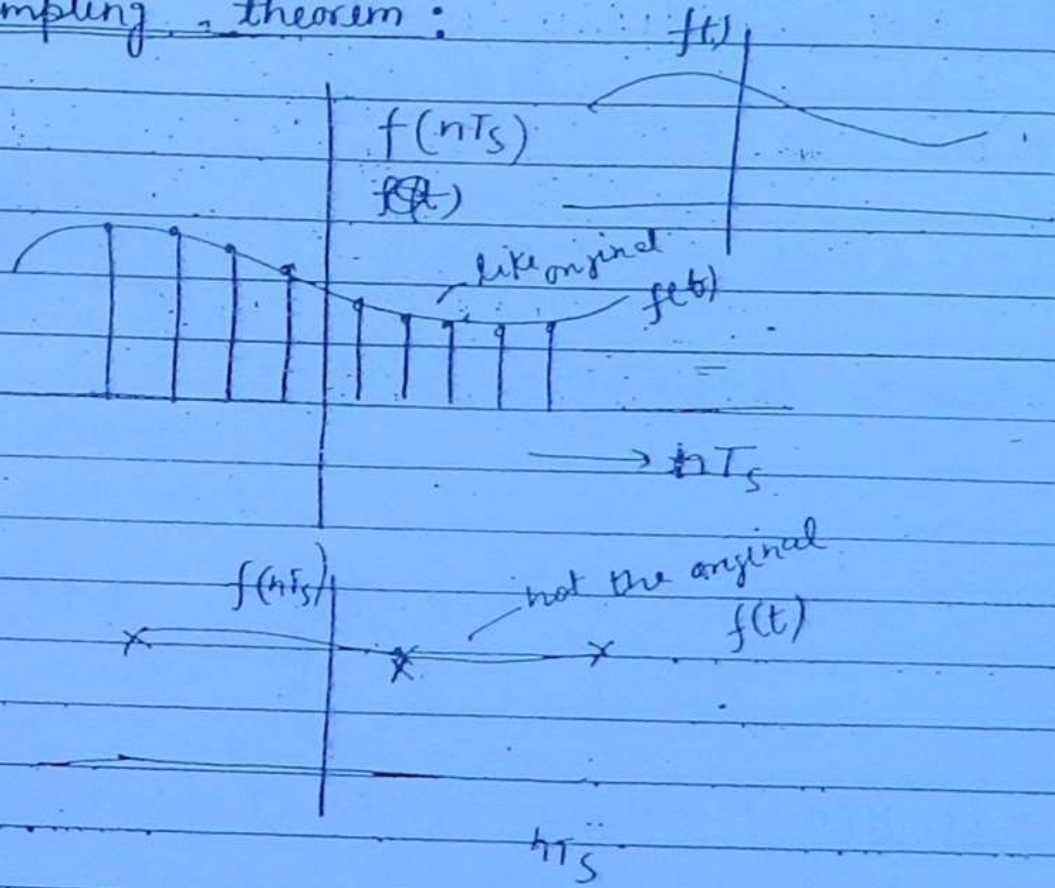 mpling theorem :
f(t)
f(nTs)
f(t)
like original
f(t)
→ nTs
f(nTs)
not the original
f(t)
nTs